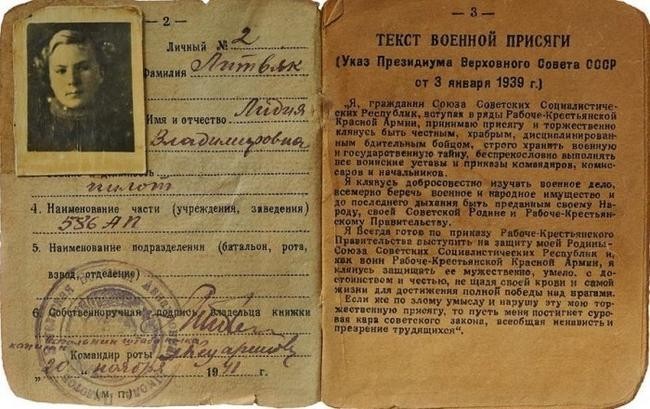 — 2 —
Личный № 2
Фамилия Литвяк
Имя и отчество Лидия
Владимировна
пилот
4. Наименование части (учреждения, заведения)
586 АП
5. Наименование подразделения (батальон, рота,
взвод, отделение)
6. Собственноручная подпись владельца книжки
Командир роты
"20" ноября 1941
(м. п.)
— 3 —
ТЕКСТ ВОЕННОЙ ПРИСЯГИ
(Указ Президиума Верховного Совета СССР
от 3 января 1939 г.)
„Я, гражданин Союза Советских Социалистичес-
Республик, вступая в ряды Рабоче-Крестьянской
Красной Армии, принимаю присягу и торжественно
клянусь быть честным, храбрым, дисциплинирован-
ным бдительным бойцом, строго хранить военную
и государственную тайну, беспрекословно выполнять
все воинские уставы и приказы командиров, комис-
саров и начальников.
Я клянусь добросовестно изучать военное дело,
всемерно беречь военное и народное имущество и
до последнего дыхания быть преданным своему На-
роду, своей Советской Родине и Рабоче-Крестьян-
скому Правительству.
Я Всегда готов по приказу Рабоче-Крестьянского
Правительства выступить на защиту моей Родины-
Союза Советских Социалистических Республик и,
как воин Рабоче-Крестьянской Красной Армии, я
клянусь защищать ее мужественно, умело, с до-
стоинством и честью, не щадя своей крови и самой
жизни для достижения полной победы над врагами.
Если же по злому умыслу я нарушу эту мою тор-
жественную присягу, то пусть меня постигнет суро-
вая кара советского закона, всеобщая ненависть и
презрение трудящихся“.